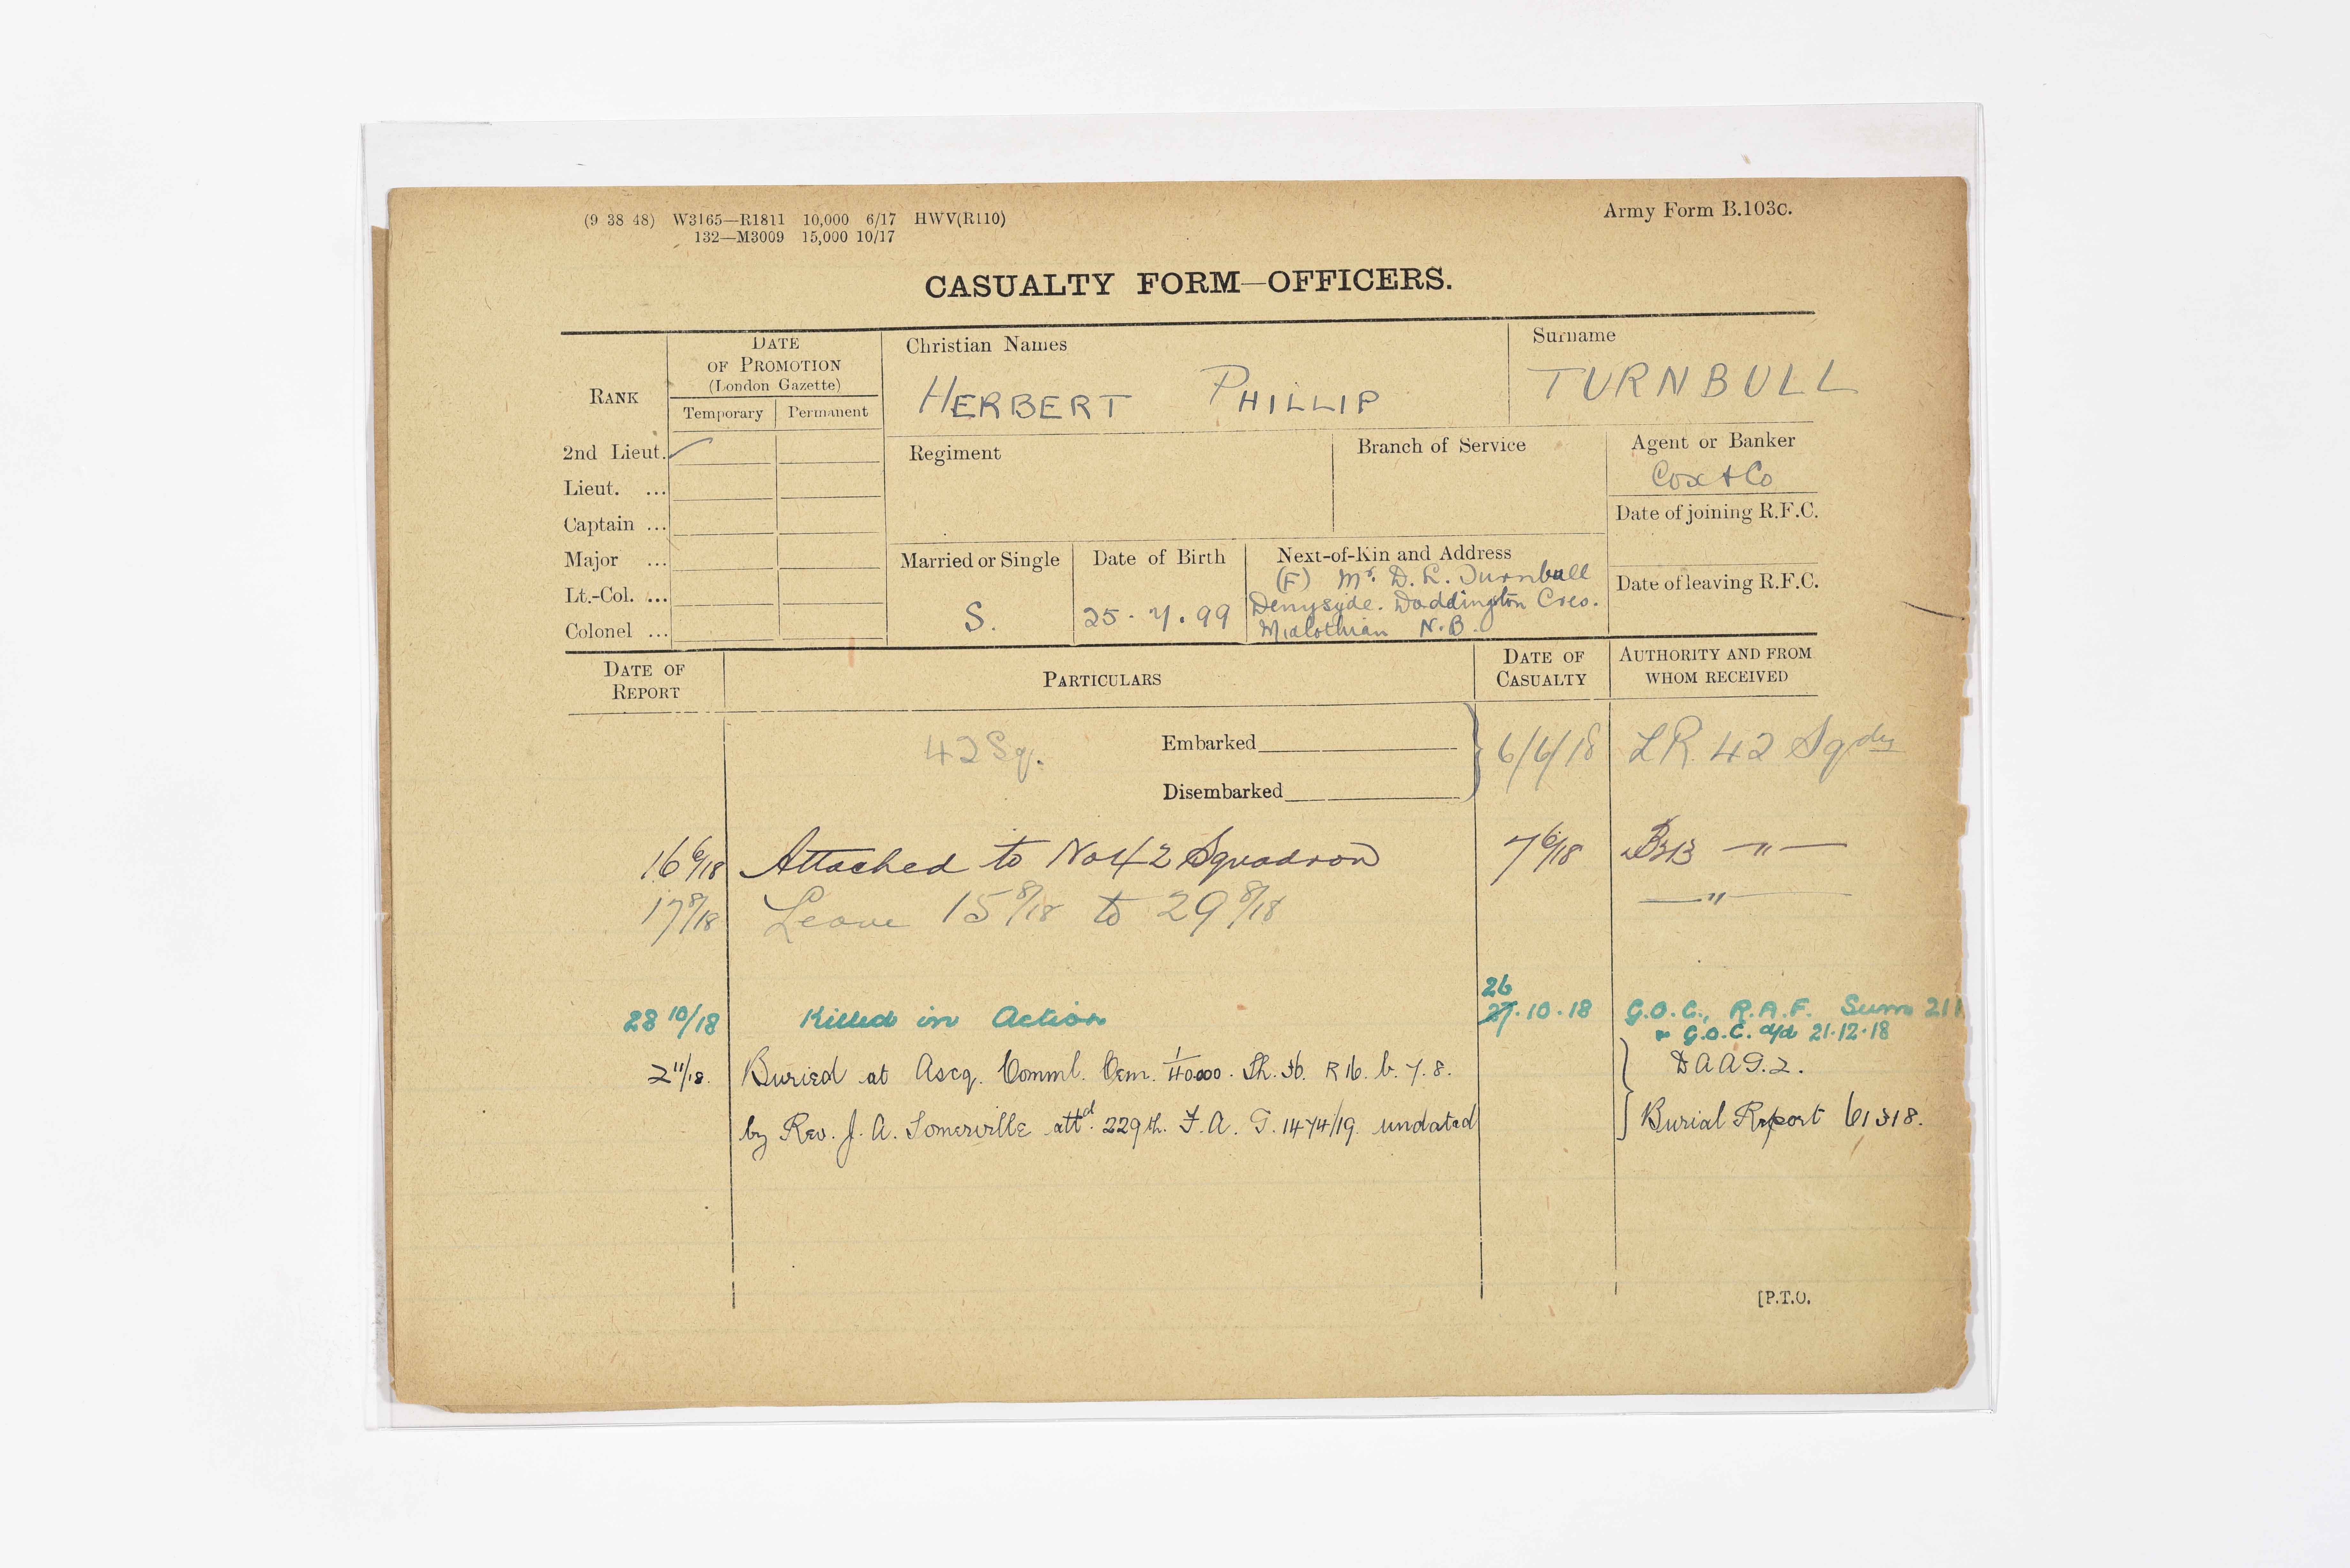 (9 38 48) W3165—R1811 10,000 6/17 HWV(R110)
132—M3009 15,000 10/17
Army Form B.103c.
CASUALTY FORM—OFFICERS.
RANK
DATE
OF PROMOTION
(London Gazette)
Temporary Permanent
Christian Names
HERBERT PHILLIP
Surname
TURNBULL
2nd Lieut.
Lieut. ...
Captain ...
Major ...
Lt.-Col. ...
Colonel ...
Regiment
Branch of Service
Agent or Banker
Cox & Co
Date of joining R.F.C.
Date of leaving R.F.C.
Married or Single
S.
Date of Birth
25.7.99
Next-of-Kin and Address
(F) Mr. D. L. Turnbull
Denysyde. Doddington Cres.
Midlothian N.B.
DATE OF REPORT PARTICULARS DATE OF CASUALTY AUTHORITY AND FROM WHOM RECEIVED
42 Sq. Embarked 6/6/18 LR 42 Sqdn
Disembarked
16 6/18 Attached to No 42 Squadron 7 6/18 B213 —"—
17 8/18 Leave 15 8/18 to 29 8/18 —"—
26
28 10/18 Killed in Action 27.10.18 G.O.C., R.A.F. Sum 211
& G.O.C. d/d 21.12.18
2 11/18. Buried at Ascq. Comml. Cem. 1/40000. Sh. 36. R 16. b. 7. 8. DAAG.2.
by Rev. J. A. Somerville attd. 229th. F.A. G. 1474/19. undated Burial Report 61318.
[P.T.O.